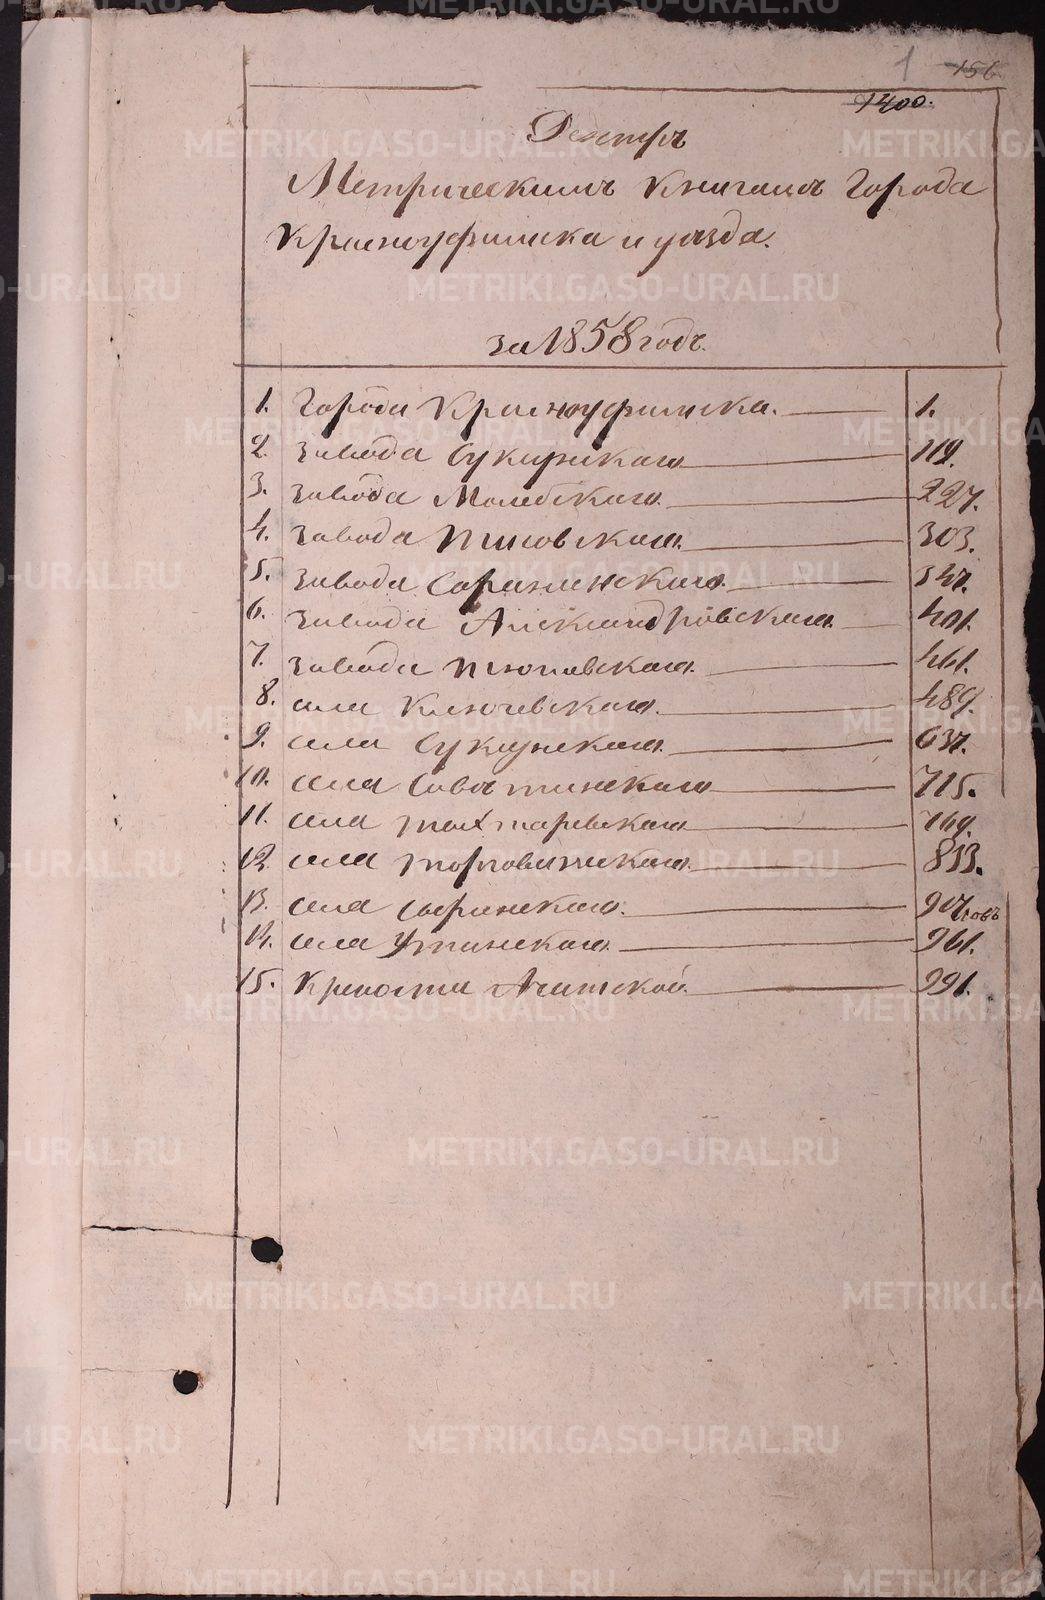 1 156
1400.
Реэстръ
Метрическимъ книгамъ Города
Красноуфимска и уѣзда.
за 1858 годъ.
1. Города Красноуфимска. 1.
2. завода Суксунскаго 119.
3. завода Молебскаго. 227.
4. завода Тисовскаго. 303.
5. завода Саранинскаго. 347.
6. завода Александровскаго. 401.
7. завода Нязепетровскаго. 461.
8. села Ключевскаго. 489.
9. села Суксунскаго. 637.
10. села Совѣтинскаго 715.
11. села Тохтаревскаго 769.
12. села Торговижскаго. 833.
13. села Сыринскаго. 907
14. села Утинскаго. 961.
15. Крѣпости Ачитской. 991.
METRIKI.GASO-URAL.RU